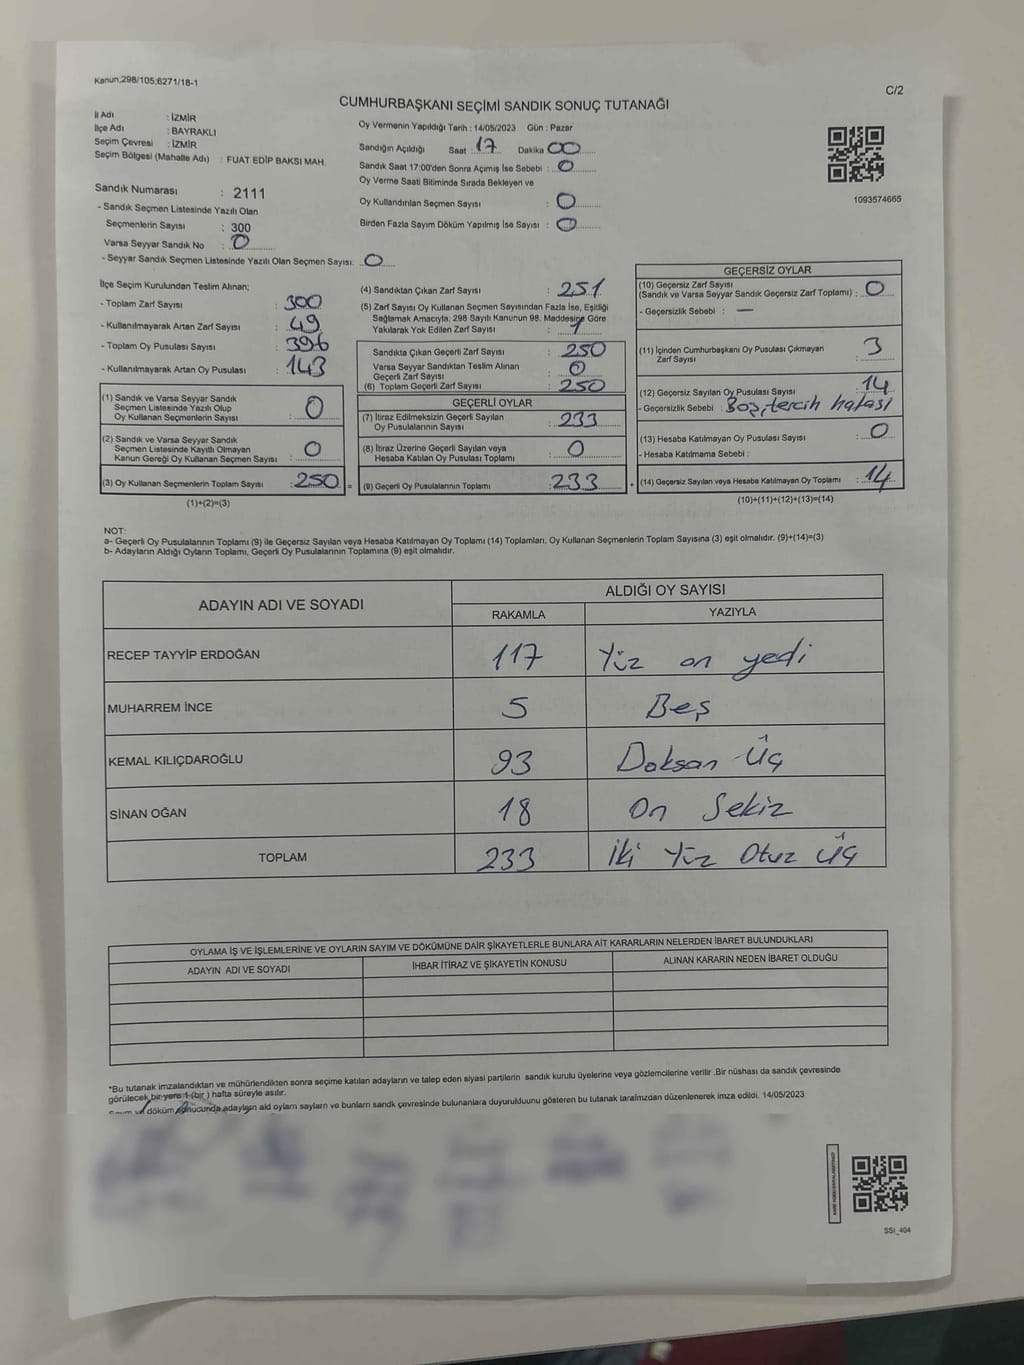 Kanun;298/105;6271/18-1
C/2
CUMHURBAŞKANI SEÇİMİ SANDIK SONUÇ TUTANAĞI
İl Adı : İZMİR
İlçe Adı : BAYRAKLI
Seçim Çevresi : İZMİR
Seçim Bölgesi (Mahalle Adı) : FUAT EDİP BAKSI MAH.
Oy Vermenin Yapıldığı Tarih : 14/05/2023 Gün : Pazar
Sandığın Açıldığı Saat : 17 Dakika 00
Sandık Saat 17:00'den Sonra Açımış İse Sebebi : 0
Oy Verme Saati Bitiminde Sırada Bekleyen ve
Oy Kullandırılan Seçmen Sayısı : 0
Birden Fazla Sayım Döküm Yapılmış İse Sayısı : 0
1093574665
Sandık Numarası : 2111
- Sandık Seçmen Listesinde Yazılı Olan
Seçmenlerin Sayısı : 300
Varsa Seyyar Sandık No : 0
- Seyyar Sandık Seçmen Listesinde Yazılı Olan Seçmen Sayısı: 0
İlçe Seçim Kurulundan Teslim Alınan;
- Toplam Zarf Sayısı : 300
- Kullanılmayarak Artan Zarf Sayısı : 49
- Toplam Oy Pusulası Sayısı : 396
- Kullanılmayarak Artan Oy Pusulası : 143
(1) Sandık ve Varsa Seyyar Sandık
Seçmen Listesinde Yazılı Olup
Oy Kullanan Seçmenlerin Sayısı : 0
(2) Sandık ve Varsa Seyyar Sandık
Seçmen Listesinde Kayıtlı Olmayan
Kanun Gereği Oy Kullanan Seçmen Sayısı : 0
(3) Oy Kullanan Seçmenlerin Toplam Sayısı : 250 =
(1)+(2)=(3)
(4) Sandıktan Çıkan Zarf Sayısı : 251
(5) Zarf Sayısı Oy Kullanan Seçmen Sayısından Fazla İse, Eşitliği
Sağlamak Amacıyla; 298 Sayılı Kanunun 98. Maddesine Göre
Yakılarak Yok Edilen Zarf Sayısı : 1
Sandıkta Çıkan Geçerli Zarf Sayısı : 250
Varsa Seyyar Sandıktan Teslim Alınan
Geçerli Zarf Sayısı : 0
(6) Toplam Geçerli Zarf Sayısı : 250
GEÇERLİ OYLAR
(7) İtiraz Edilmeksizin Geçerli Sayılan
Oy Pusulalarının Sayısı : 233
(8) İtiraz Üzerine Geçerli Sayılan veya
Hesaba Katılan Oy Pusulası Toplamı : 0
(9) Geçerli Oy Pusulalarının Toplamı : 233 +
GEÇERSİZ OYLAR
(10) Geçersiz Zarf Sayısı
(Sandık ve Varsa Seyyar Sandık Geçersiz Zarf Toplamı) : 0
- Geçersizlik Sebebi : —
(11) İçinden Cumhurbaşkanı Oy Pusulası Çıkmayan
Zarf Sayısı : 3
(12) Geçersiz Sayılan Oy Pusulası Sayısı : 14
- Geçersizlik Sebebi : Boş, tercih hatası
(13) Hesaba Katılmayan Oy Pusulası Sayısı : 0
- Hesaba Katılmama Sebebi :
(14) Geçersiz Sayılan veya Hesaba Katılmayan Oy Toplamı : 14
(10)+(11)+(12)+(13)=(14)
NOT:
a- Geçerli Oy Pusulalarının Toplamı (9) ile Geçersiz Sayılan veya Hesaba Katılmayan Oy Toplamı (14) Toplamları, Oy Kullanan Seçmenlerin Toplam Sayısına (3) eşit olmalıdır. (9)+(14)=(3)
b- Adayların Aldığı Oyların Toplamı, Geçerli Oy Pusulalarının Toplamına (9) eşit olmalıdır.
ADAYIN ADI VE SOYADI ALDIĞI OY SAYISI
RAKAMLA YAZIYLA
RECEP TAYYİP ERDOĞAN 117 Yüz on yedi
MUHARREM İNCE 5 Beş
KEMAL KILIÇDAROĞLU 93 Doksan Üç
SİNAN OĞAN 18 On Sekiz
TOPLAM 233 İki Yüz Otuz Üç
OYLAMA İŞ VE İŞLEMLERİNE VE OYLARIN SAYIM VE DÖKÜMÜNE DAİR ŞİKAYETLERLE BUNLARA AİT KARARLARIN NELERDEN İBARET BULUNDUKLARI
ADAYIN ADI VE SOYADI İHBAR İTİRAZ VE ŞİKAYETİN KONUSU ALINAN KARARIN NEDEN İBARET OLDUĞU
*Bu tutanak imzalandıktan ve mühürlendikten sonra seçime katılan adayların ve talep eden siyasi partilerin sandık kurulu üyelerine veya gözlemcilerine verilir .Bir nüshası da sandık çevresinde
görülecek bir yere 1 (bir ) hafta süreyle asılır.
ve döküm sonucunda adayların ald oyların sayların ve bunların sandk çevresinde bulunanlara duyurulduunu gösteren bu tutanak tarafmzdan düzenlenerek imza edildi. 14/05/2023
SSI_404